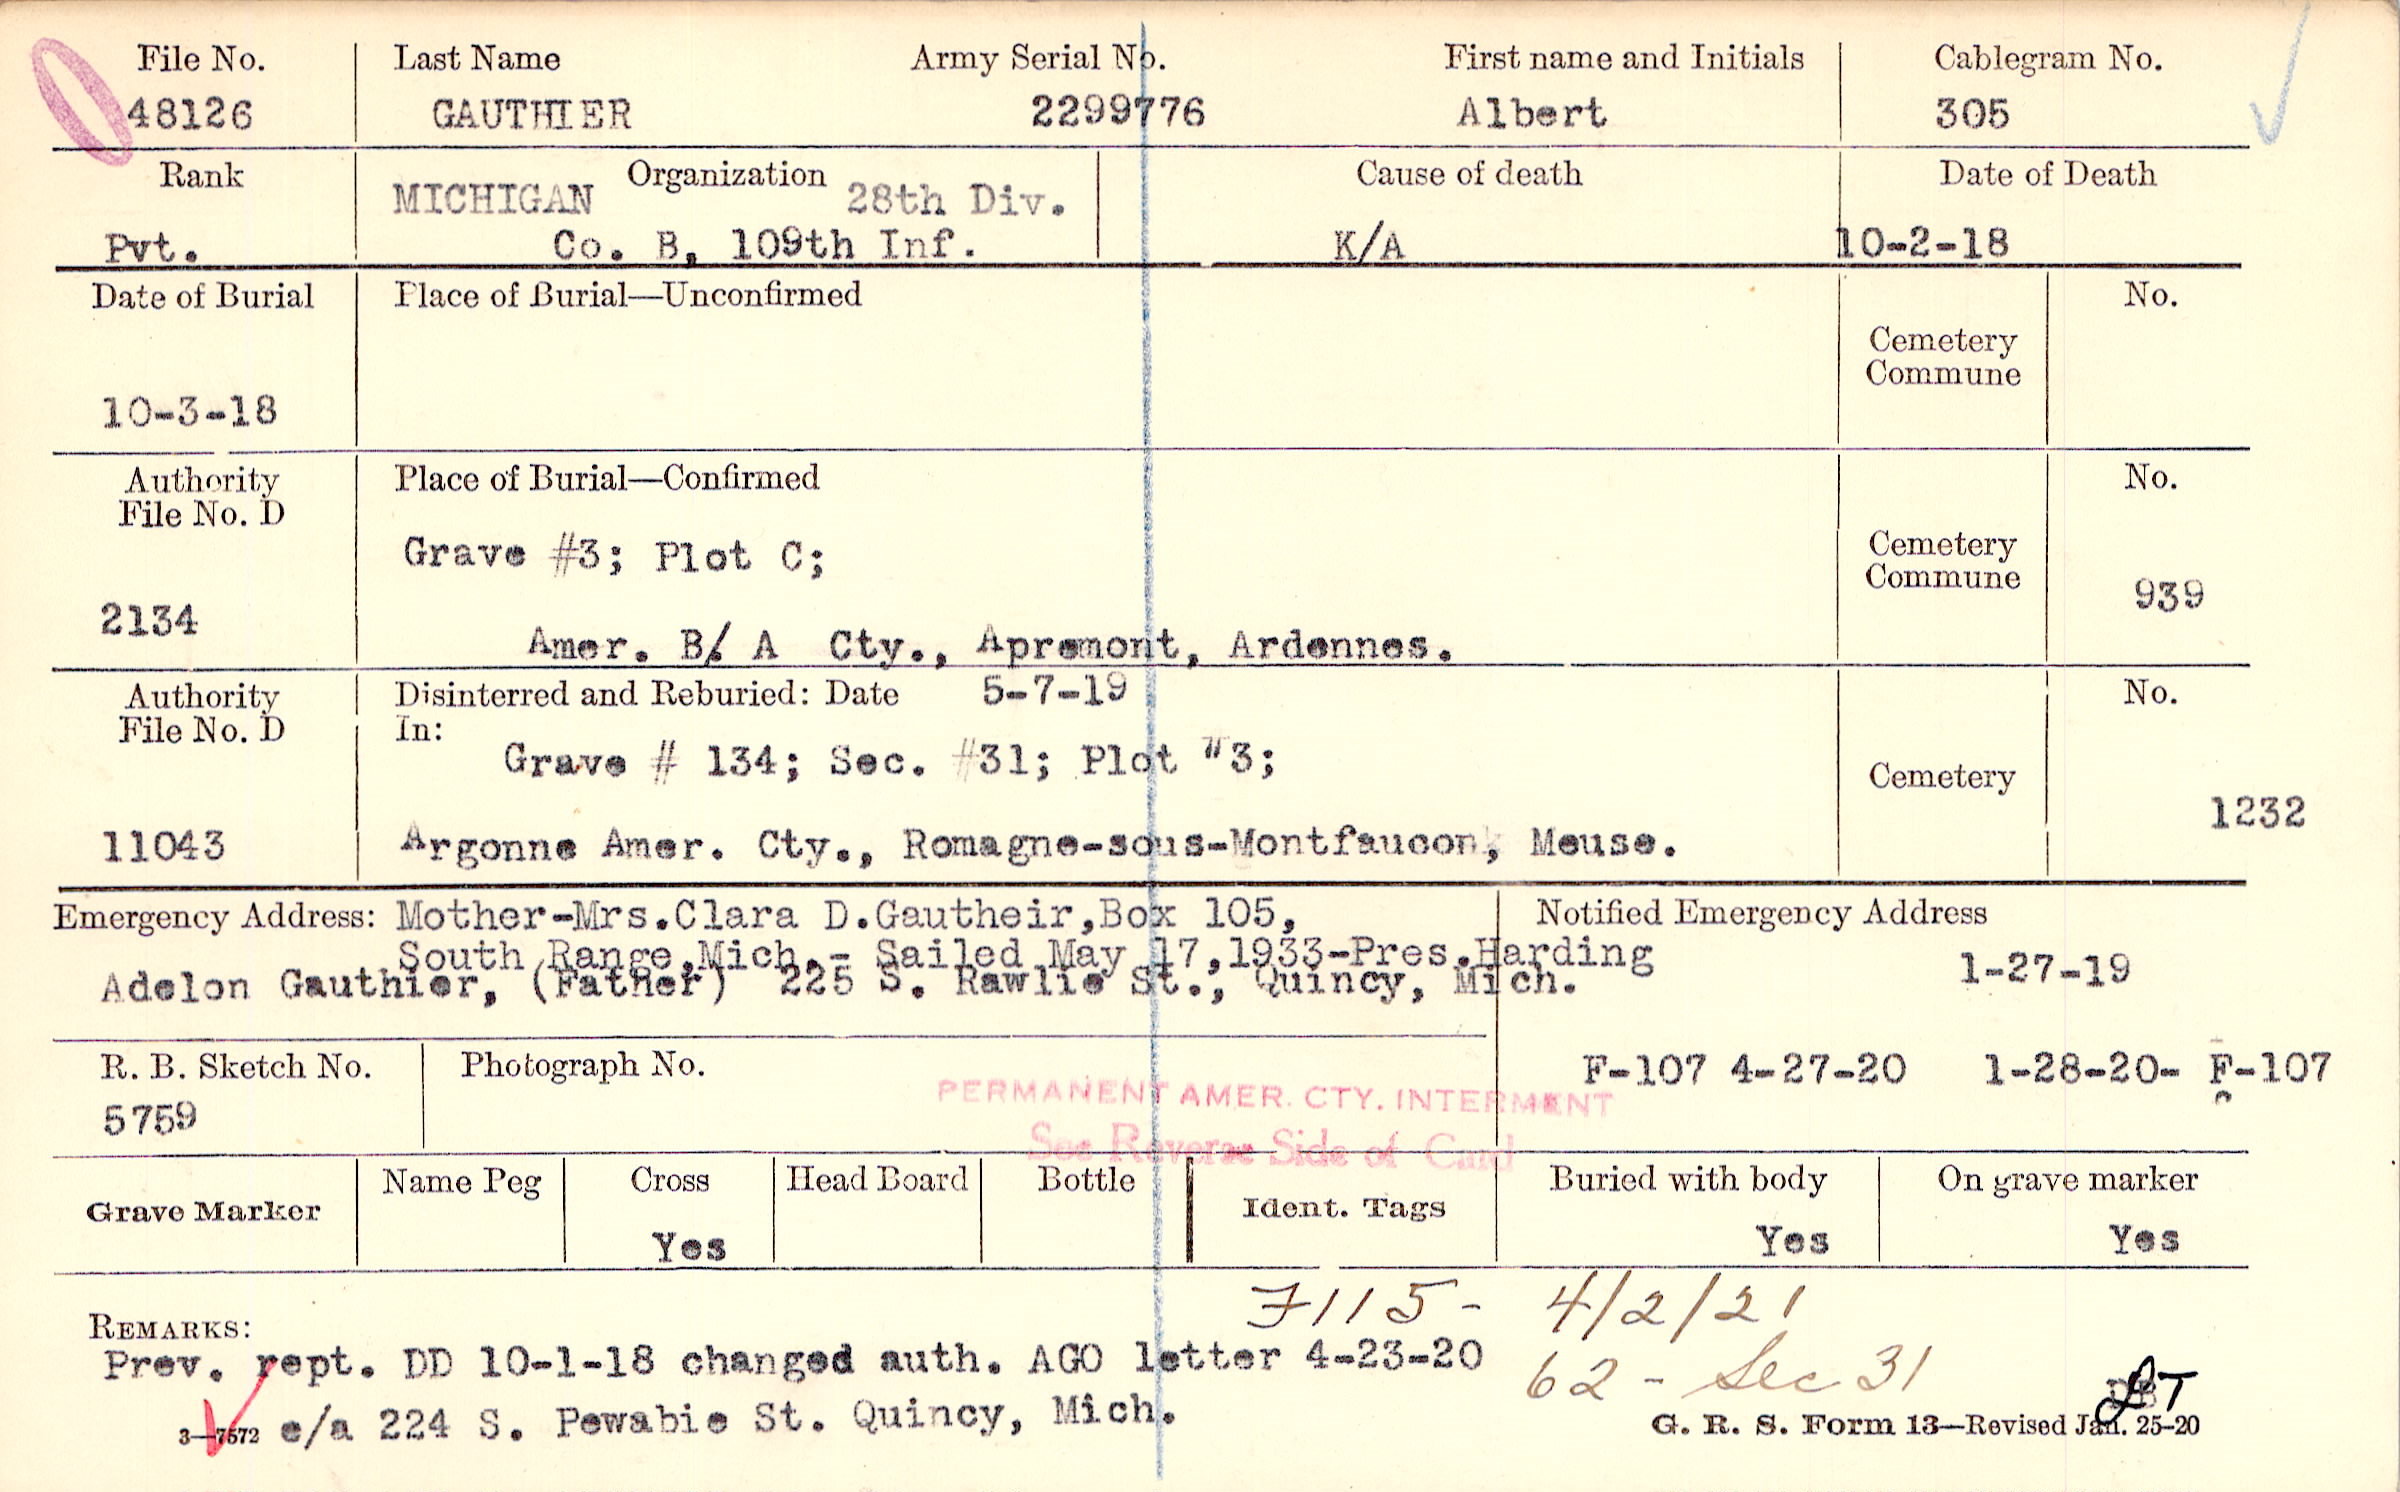 File No. Last Name Army Serial No. First name and Initials Cablegram No.
48126 GAUTHIER 2299776 Albert 305
Rank Organization Cause of death Date of Death
MICHIGAN 28th Div.
Pvt. Co. B, 109th Inf. K/A 10-2-18
Date of Burial Place of Burial—Unconfirmed No.
Cemetery
Commune
10-3-18
Authority Place of Burial—Confirmed No.
File No. D
Grave #3; Plot C; Cemetery
Commune
2134 939
Amer. B/ A Cty., Apremont, Ardennes.
Authority Disinterred and Reburied: Date 5-7-19 No.
File No. D In:
Grave # 134; Sec. #31; Plot "3; Cemetery
1232
11043 Argonne Amer. Cty., Romagne-sous-Montfaucon, Meuse.
Emergency Address: Mother-Mrs.Clara D.Gautheir,Box 105, Notified Emergency Address
South Range,Mich.- Sailed May 17,1933-Pres.Harding
Adelon Gauthier, (Father) 225 S. Rawlie St., Quincy, Mich. 1-27-19
R. B. Sketch No. Photograph No. F-107 4-27-20 1-28-20- F-107
5759 PERMANENT AMER. CTY. INTERMENT
See Reverse Side of Card
Grave Marker Name Peg Cross Head Board Bottle Ident. Tags Buried with body On grave marker
Yes Yes Yes
7115- 4/2/21
REMARKS:
Prev. rept. DD 10-1-18 changed auth. AGO letter 4-23-20 62 - Sec 31
3—7572 e/a 224 S. Pewabie St. Quincy, Mich. G. R. S. Form 13—Revised Jan. 25-20